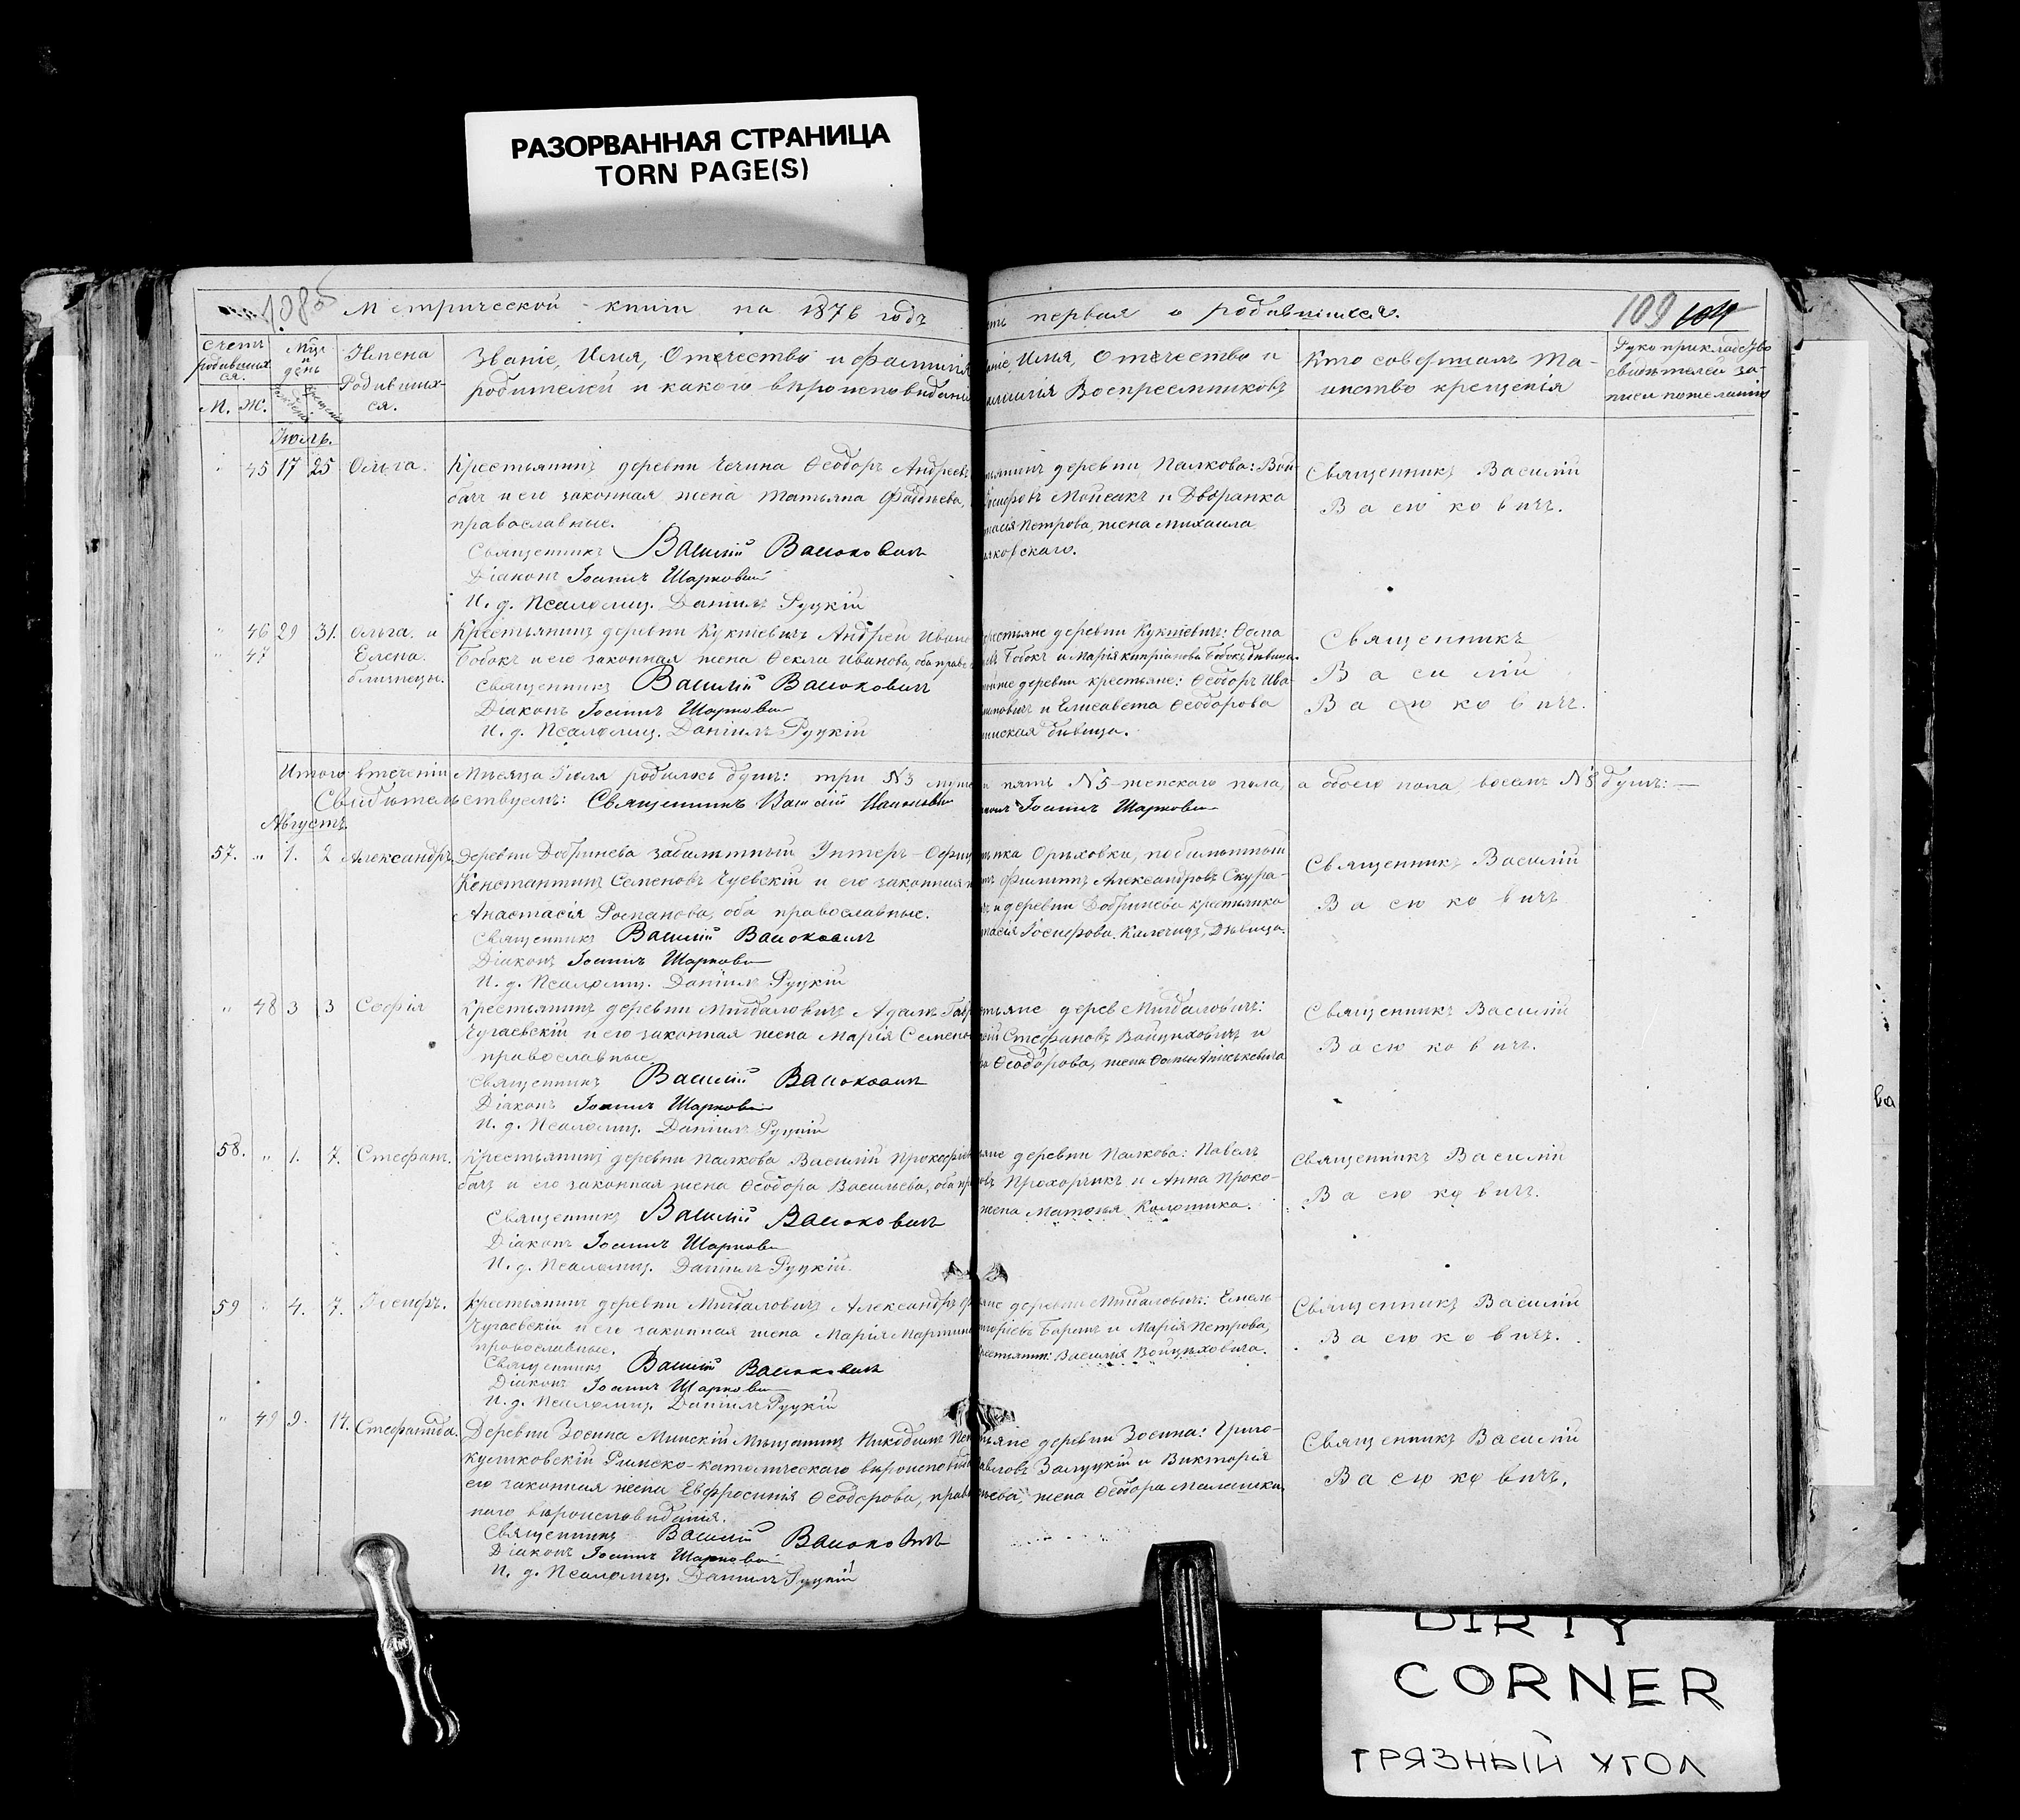 РАЗОРВАННАЯ СТРАНИЦА
TORN PAGE(S)
108об
Метрической книги на 1876 годъ
первая о родившихся.
109 104
Счетъ родившихся.
М. Ж.
Мцъ и день
Имена Родившихся.
Званіе, Имя, Отчество и фамилія
родителей и какого вѣроисповѣданія
Имя, Отчество и
Воспреемниковъ
Кто совершалъ Та-
инство крещенія
Рукоприкладство
свидѣтелей за-
писи по желанію
Іюль.
45 17 25 Ольга. Крестьянинъ деревни Чечина Ѳеодоръ Андреевъ
и его законная жена Татьяна Фадѣева,
православные.
Священникъ Василій Васюковичъ
Діаконъ Іоаннъ Шаркови
И. д. Псаломщ. Даніилъ Руцкій
деревни Палкова:
Мойсакъ и Дворянка
Петрова, жена Михаила
Священникъ Василій
Васюковичъ.
46 29 31. Ольга и Крестьянинъ деревни Кукпевичъ Андрей
47 Елена. Бобокъ и его законная жена Ѳекла Иванова, оба
близнецы.
Священникъ Василій Васюковичъ
Діаконъ Іоаннъ Шаркови
И. д. Псаломщ. Даніилъ Руцкій
деревни Кукпевичъ: Ѳома
Бобокъ и Марія Кипріанова Бобокъ, дѣвица.
деревни крестьяне: Ѳеодоръ Ива-
и Елисавета Ѳеодорова
дѣвица.
Священникъ
Василій
Васюковичъ.
Итого втеченіи Мѣсяца Іюля родилось душъ: три №3
пять №5 женскаго пола, а обоего пола восемь №8 душъ: —
Свидѣтельствуемъ: Священникъ Василій Васюковичъ
Іоаннъ Шаркови
Августъ.
57. " 1. 2 Александръ. Деревни Добринева забилетный Унтеръ-Офиц
Константинъ Семеновъ Чуевскій и его законная
Анастасія Романова, оба православные.
Священникъ Василій Васюковичъ
Діаконъ Іоаннъ Шаркови
И. д. Псаломщ. Даніилъ Руцкій
Орѣховки,
Филиппъ Александровъ Скура-
и деревни Добринева крестьянка
Іосифова. Калечицъ, Дѣвица.
Священникъ Василій
Васюковичъ
" 48 3 3 Софія Крестьянинъ деревни Мигдаловичъ Адамъ
Чугаевскій и его законная жена Марія
православные
Священникъ Василій Васюковичъ
Діаконъ Іоаннъ Шаркови
И. д. Псаломщ. Даніилъ Руцкій
дерев Мигдаловичъ:
Стефановъ Войцѣховичъ и
Ѳеодорова, жена Ѳомы
Священникъ Василій
Васюковичъ.
58. " 1. 7. Стефанъ. Крестьянинъ деревни Палкова Василій
и его законная жена Ѳеодора Васильева,
Священникъ Василій Васюковичъ
Діаконъ Іоаннъ Шаркови
И. д. Псаломщ. Даніилъ Руцкій.
деревни Палкова: Павелъ
Прохорчикъ и Анна Проко-
жена Матѳея Колотика.
Священникъ Василій
Васюковичъ.
59 " 4. 7. Іосифъ. Крестьянинъ деревни Мигдаловичъ Александръ
Чугаевскій и его законная жена Марія
православные.
Священникъ Василій Васюковичъ
Діаконъ Іоаннъ Шаркови
И. д. Псаломщ. Даніилъ Руцкій
деревни Мигдаловичъ:
и Марія Петрова,
Василія Войцѣховича.
Священникъ Василій
Васюковичъ.
" 49 9. 14. Стефанида. Деревни Зосина Минскій Мѣщанинъ Никодимъ
Куликовскій Римско-католическаго
его законная жена Евфросинія Ѳеодорова,
наго вѣроисповѣданія.
Священникъ Василій Васюковичъ
Діаконъ Іоаннъ Шаркови
И. д. Псаломщ. Даніилъ Руцкій
деревни Зосина: Григо-
Залуцкій и Викторія
жена Ѳеодора Малашки.
Священникъ Василій
Васюковичъ.
ва
DIRTY
CORNER
ГРЯЗНЫЙ УГОЛ